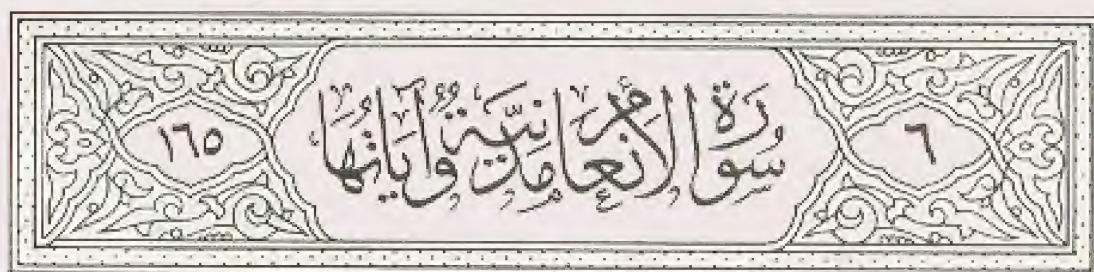 ٦ سُورَةُ الأنعَامِ مَدَنِيَّةٌ وَأيَاتُهَا ١٦٥